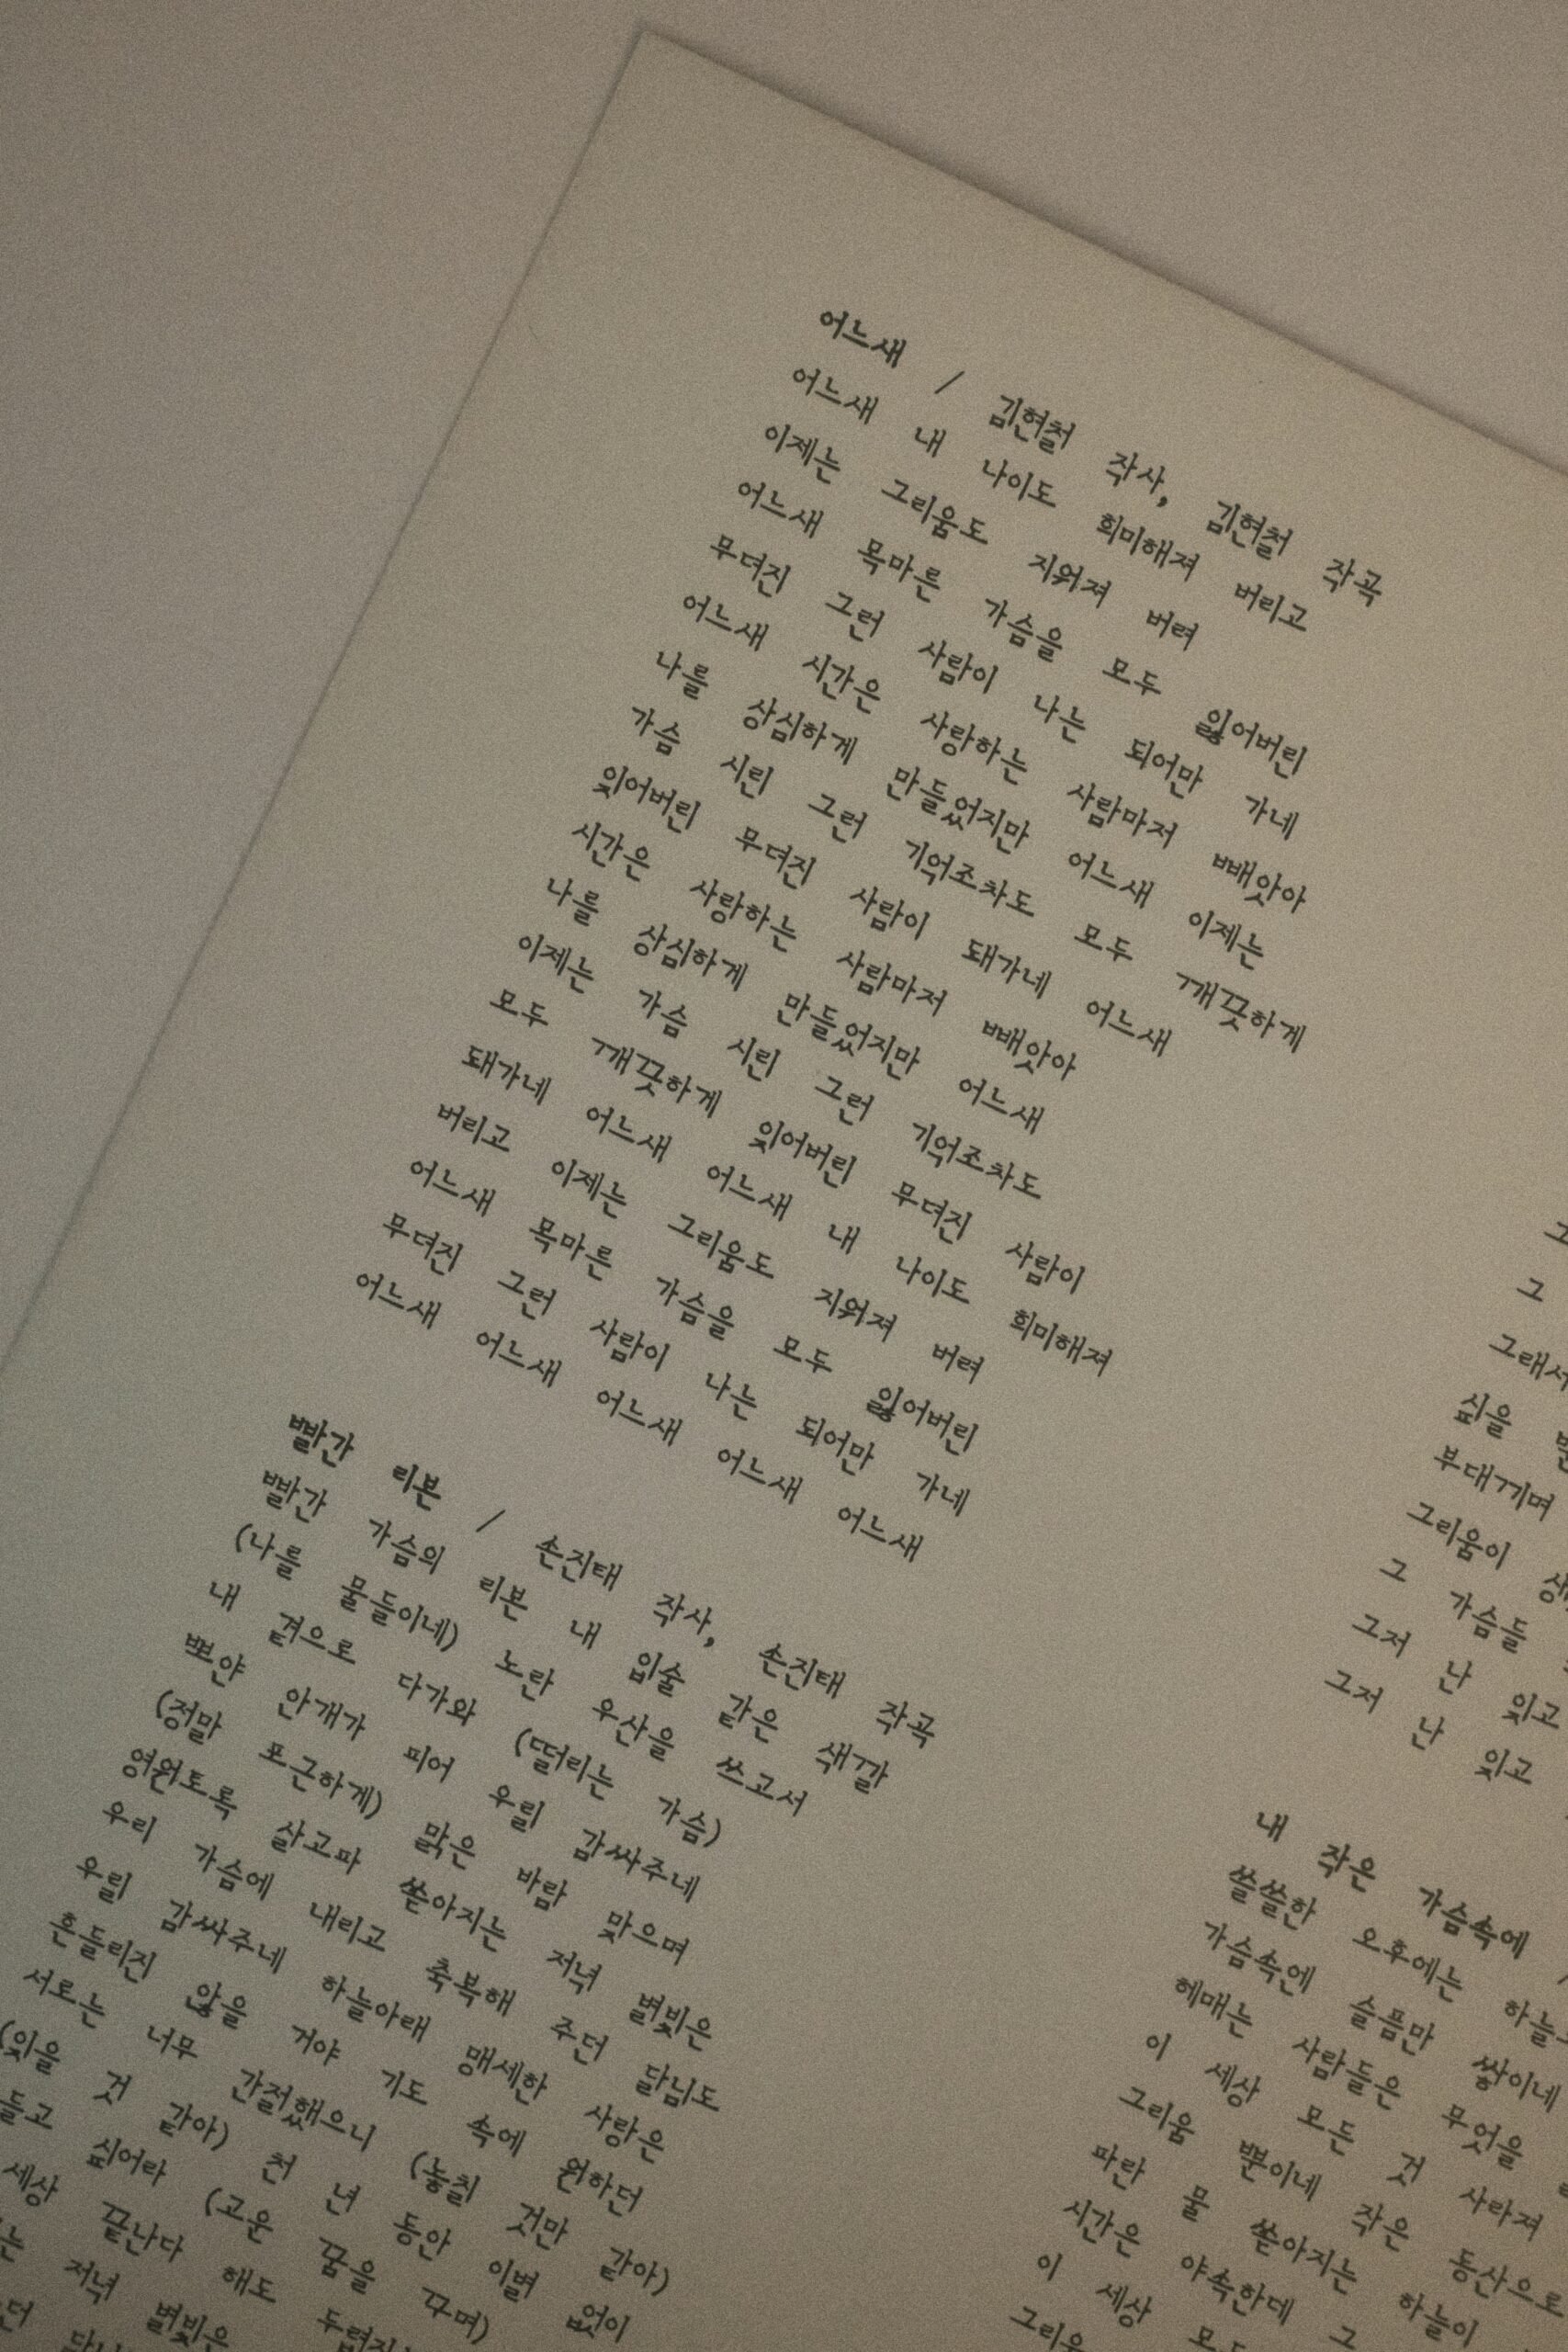 어느새 / 김현철 작사, 김현철 작곡
어느새 내 나이도 희미해져 버리고
이제는 그리움도 지워져 버려
어느새 목마른 가슴을 모두 잃어버린
무뎌진 그런 사람이 나는 되어만 가네
어느새 시간은 사랑하는 사람마저 빼앗아
나를 상심하게 만들었지만 어느새 이제는
가슴 시린 그런 기억조차도 모두 깨끗하게
잊어버린 무뎌진 사람이 돼가네 어느새
시간은 사랑하는 사람마저 빼앗아
나를 상심하게 만들었지만 어느새
이제는 가슴 시린 그런 기억조차도
모두 깨끗하게 잊어버린 무뎌진 사람이
돼가네 어느새 어느새 내 나이도 희미해져
버리고 이제는 그리움도 지워져 버려
어느새 목마른 가슴을 모두 잃어버린
무뎌진 그런 사람이 나는 되어만 가네
어느새 어느새 어느새 어느새 어느새
빨간 리본 / 손진태 작사, 손진태 작곡
빨간 가슴의 리본 내 입술 같은 색깔
(나를 물들이네) 노란 우산을 쓰고서
내 곁으로 다가와 (떨리는 가슴)
뽀얀 안개가 피어 우릴 감싸주네
(정말 포근하게) 맑은 바람 맞으며
영원토록 살고파 쏟아지는 저녁 별빛은
우리 가슴에 내리고 축복해 주던 달님도
우릴 감싸주네 하늘아래 맹세한 사랑은
흔들리진 않을 거야 기도 속에 원하던
서로는 너무 간절했으니 (놓칠 것만 같아)
(있을 것 같아) 천 년 동안 이별 없이
들고 싶어라 (고운 꿈을 꾸며)
세상 끝난다 해도
는 저녁 별빛은
던
그
그
그래서
싶을
부대끼며
그리움이
그 가슴들
그저 난 있고
그저 난 있고
내 작은 가슴속에 /
쓸쓸한 오후에는
가슴속엔 슬픔만 쌓이네
헤매는 사람들은 무엇을
이 세상 모든 것 사라져
그리움 뿐이네 작은 동산으로
파란 물 쏟아지는 하늘이
시간은 야속한데 그
이 세상